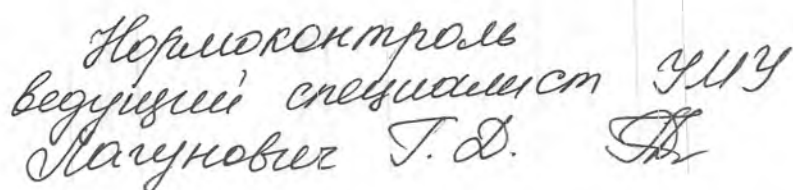 Нормоконтроль
ведущий специалист УМУ
Лагунович Г. Д.